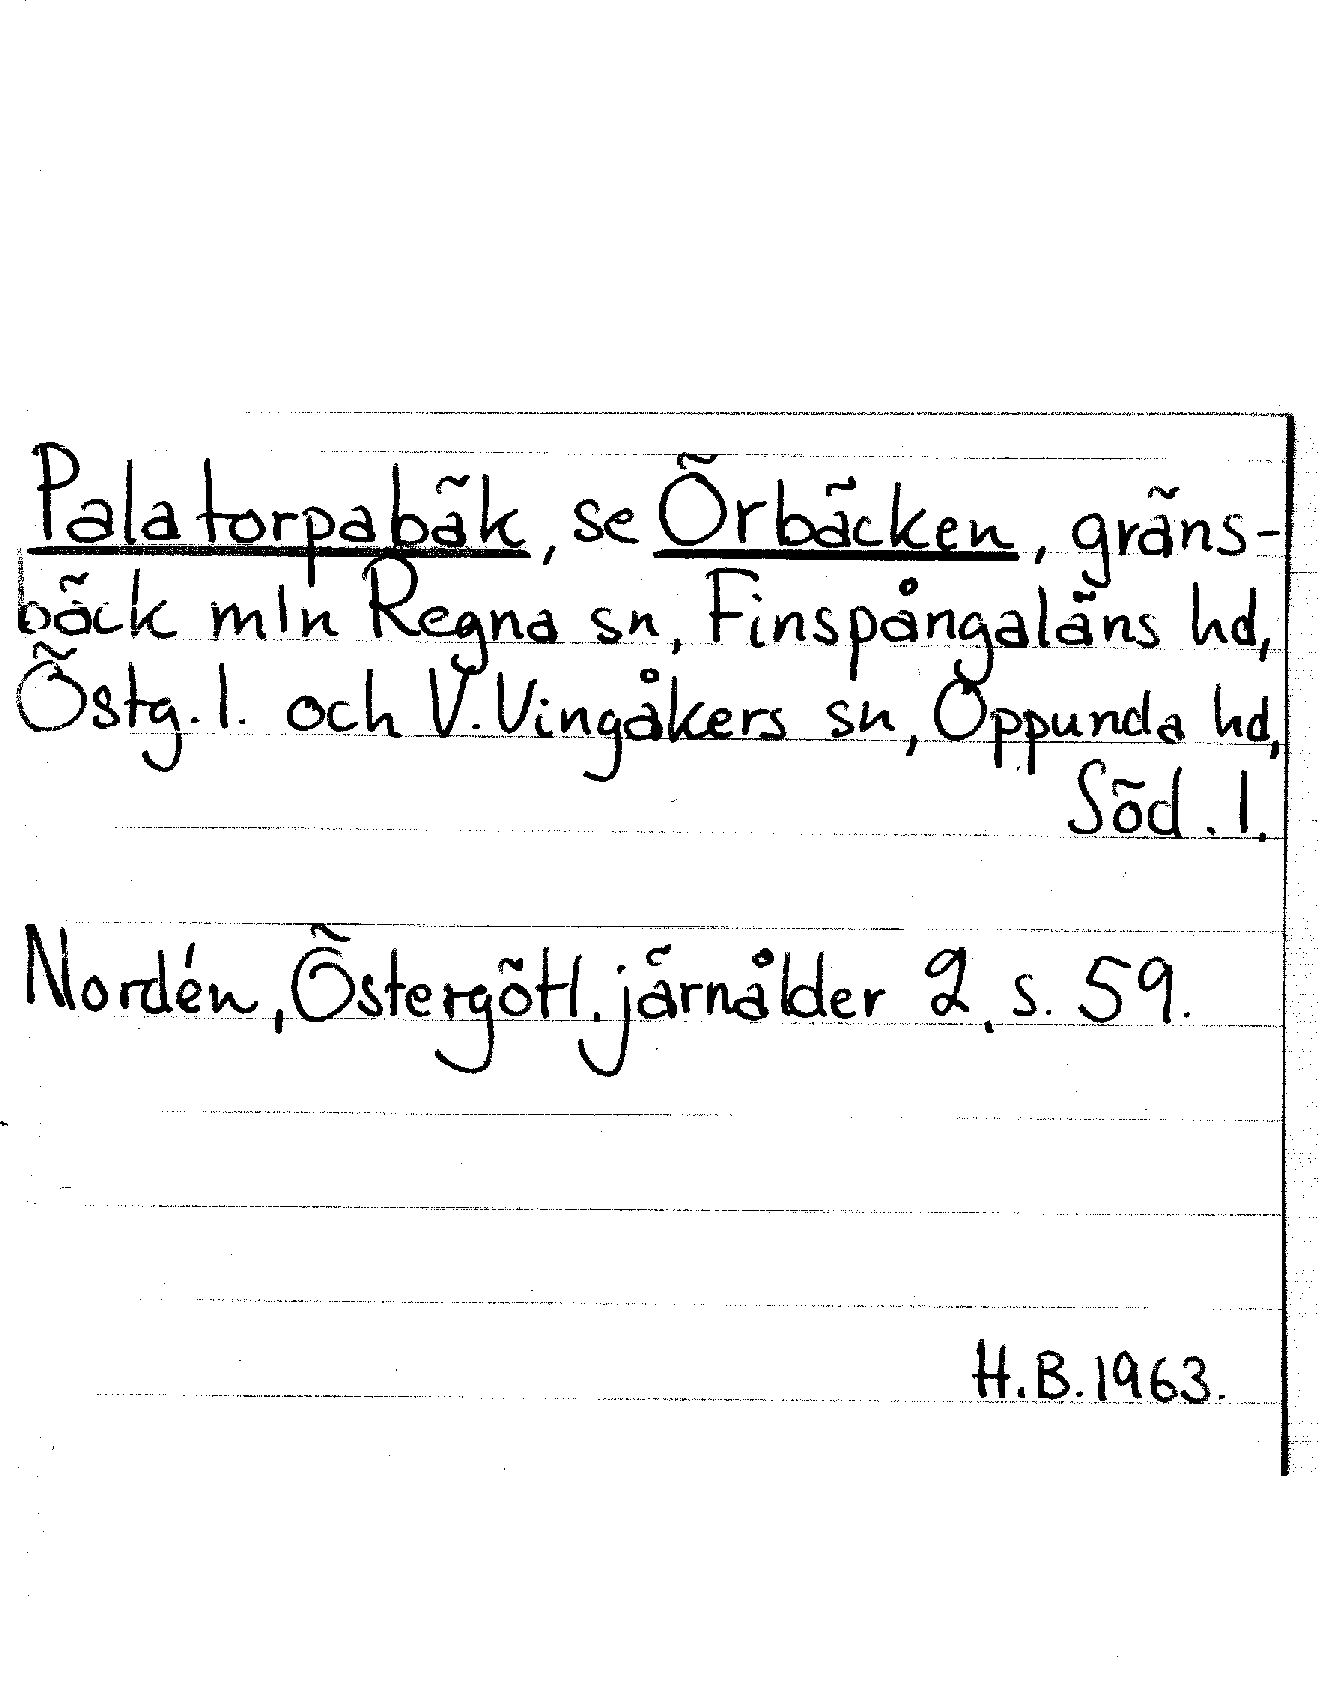 Palatorpabäk, se Örbäcken, gräns-
bäck mln Regna sn, Finspångaläns hd,
Östg. l. och V. Vingåkers sn, Oppunda hd,
Söd. l.
Nordén, Östergötl. järnålder 2, s. 59.
H.B. 1963.